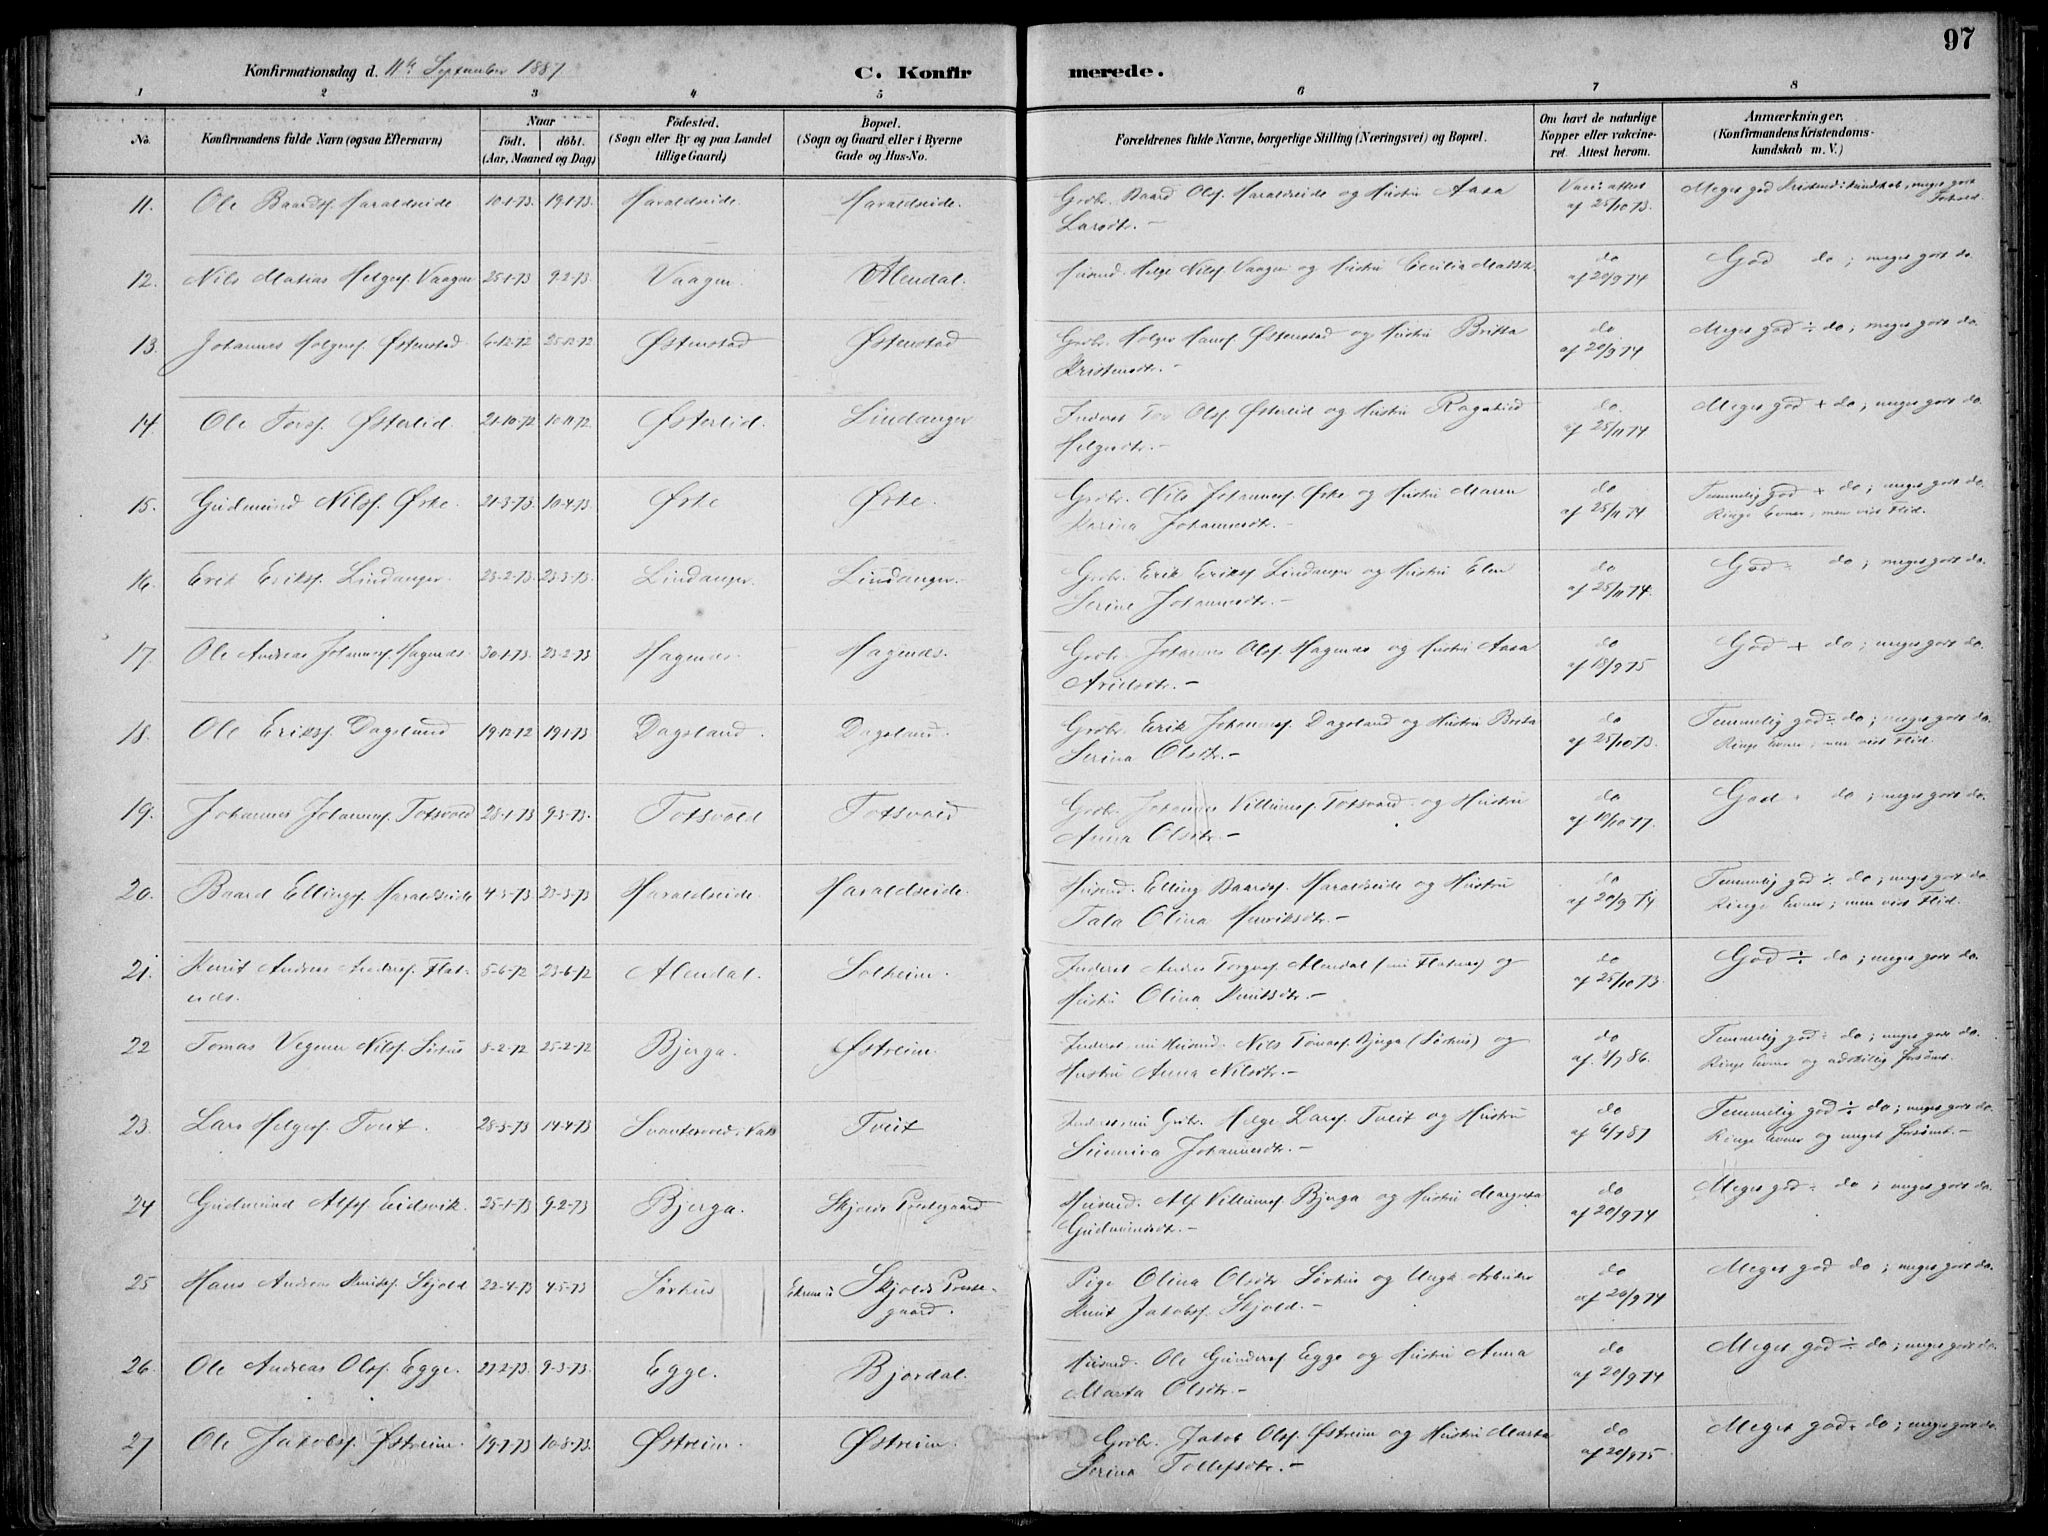 97
Konfirmationsdag d. 11te September 1887
C. Konfirmerede.
1 2 3 4 5 6 7 8
No. Konfirmandens fulde Navn (ogsaa Efternavn) Naar født. døbt. (Aar, Maaned og Dag) Fødested. (Sogn eller By og paa Landet tillige Gaard) Bopæl. (Sogn og Gaard eller i Byerne Gade og Hus-No. Forældrenes fulde Navne, borgerlige Stilling (Næringsvei) og Bopæl. Om havt de naturlige Kopper eller vakcineret. Attest herom. Anmærkninger. (Konfirmandens Kristendomskundskab m. V.)
11. Ole Baardsf. Haraldseide 10-1-73. 19-1-73. Haraldseide. Haraldseide. Grdbr. Baard Olsf. Haraldseide og Hustru Aasa
Larsdtr. – Vacc. attest af 25/10 73. Meget god Kristend: kundskab, meget godt Forhold.
12. Nils Matias Helgesf. Vaagen 25-1-73 9-2-73 Vaagen. Alendal. Husmd. Helge Nilsf. Vaagen og Hustru Cecilia Matsdtr. do af 20/9 74 God do; meget godt do.
13. Johannes Holgersf. Østenstad 6-12-72 25-12-72 Østenstad Østenstad Grdbr. Holger Hansf. Østenstad og Hustru Britta
Kristensdtr. – do af 20/9 74 Meget god ÷ do; meget godt do.
14. Ole Torsf. Østerlid 21-10-72 10-11-72. Østerlid. Lindanger Inderst Tor Olsf. Østerlid og Hustru Ragnhild
Helgesdtr. – do. af 25/11 74 Meget god + do; meget godt do.
15. Gudmund Nilsf. Ørke. 21-3-73. 10-4-73 Ørke Ørke. Grdbr. Nils Johannesf. Ørke og Hustru Maren
Karina Johannesdtr. – do af 25/11 74 Temmelig god + do; meget godt do.
Ringe Evner, men vist Flid.
16. Erik Eriksf. Lindanger. 23-2-73. 23-3-73. Lindanger. Lindanger. Grdbr. Erik Eriksf. Lindanger og Hustru Elen
Serine Johannesdtr. – do af 25/11 74. God ÷ do; meget godt do.
17. Ole Andreas Johannesf. Hagenæs. 30-1-73. 23-2-73 Hagenæs. Hagenæs. Grdbr. Johannes Olsf. Hagenæs og Hustru Aasa
Arvidsdtr. – do af 18/9 75 God + do; meget godt do.
18. Ole Eriksf. Dagsland 19-12-72 19-1-73. Dagsland. Dagsland. Grdbr. Erik Johannesf. Dagsland og Hustru Berta
Serina Olsdtr. – do af 25/10 73. Temmelig god ÷ do; meget godt do.
Ringe Evner, men vist Flid.
19. Johannes Johannesf. Totsvold 28-1-73 9-3-73. Totsvold Totsvold Grdbr. Johannes Villumsf. Totsvold og Hustru
Anna Olsdtr. – do af 10/10 77. God do; meget godt do.
20. Baard Ellingsf. Haraldseide 4-3-73 23-3-73 Haraldseide. Haraldseide. Husmd. Elling Baardsf. Haraldseide og Hustru
Tala Olina Henriksdtr. – do af 20/9 74 Temmelig god ÷ do; meget godt do.
Ringe Evner; men vist Flid.
21. Knut Andreas Andersf. Flatnæs. 5-6-72 23-6-72 Alendal. Solheim. Inderst Anders Torgersf. Alendal (nu Flatnæs) og
Hustru Olina Knutsdtr. – do af 25/10 73. God ÷ do; meget godt do.
22 Tomas Vegener Nilsf. Sørhus 8-2-72 25-2-72 Bjerga. Østreim. Inderst, nu Husmd. Nils Tomasf. Bjerga (Sørhus) og
Hustru Anna Nilsdtr. – do af. 3/7 86. Temmelig god ÷ do; meget godt do.
Ringe Evner og adskillig forsømt.
23. Lars Helgesf. Tveit. 28-3-73 14-4-73 Svantesvold i Vats Tveit Inderst, nu Grdbr. Helge Larsf. Tveit og Hustru
Sunniva Johannesdtr. – do af 6/7 87 Temmelig god ÷ do; meget godt do.
Ringe Evner og meget forsømt. –
24 Gudmund Alfsf. Eidsvik. 25-1-73 9-2-73 Bjerga. Skjolds Prestegaard Husmd. Alf Villumsf. Bjerga og Hustru Margreta
Gudmundsdtr. – do af 20/9 74 Meget god ÷ do; meget godt do.
25 Hans Andreas Knutsf. Skjold 22-4-73 4-5-73 Sørhus Skjolds Prestegaard. Pige Olina Olsdtr. Sørhus og Ungk. Arbeider
Knut Jakobsf. Skjold. – do af 20/9 74 Meget god do; meget godt do.
26. Ole Andreas Olsf. Egge. 27-2-73 9-3-73. Egge. Bjordal. Husmd. Ole Gundersf. Egge og Hustru Anna
Marta Olsdtr. – do af 20/9 74 Meget god ÷ do; meget godt do.
27 Ole Jakobsf. Østreim. 19-7-73 10-8-73. Østreim. Østreim. Grdbr. Jakob Olsf. Østreim og Hustru Marta
Serina Tollefsdtr. – do af 20/9 75 Meget god ÷ do; meget godt do.